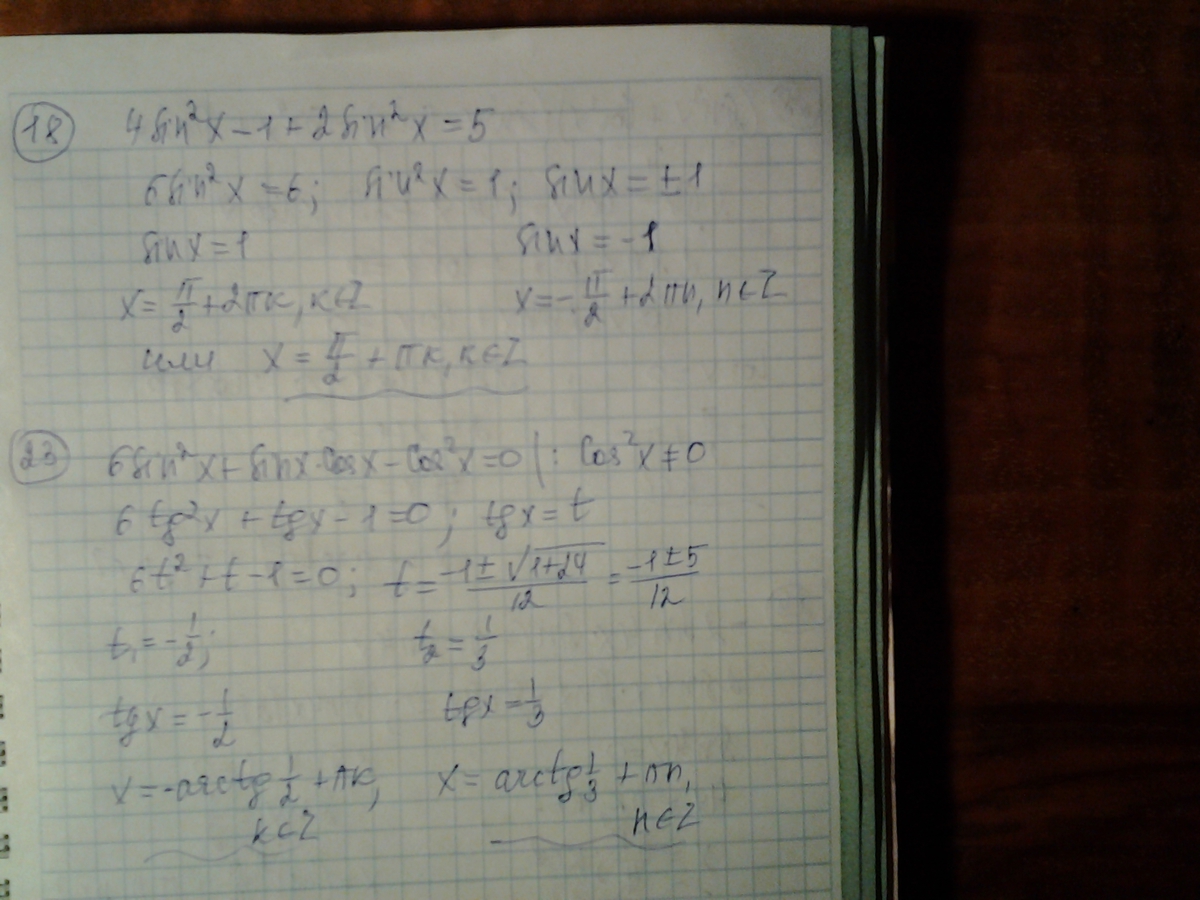 18 4 sin²x - 1 + 2 sin²x = 5
6 sin²x = 6; sin²x = 1; sinx = ±1
sinx = 1 sinx = -1
x = π/2 + 2πк, к∈Z x = -π/2 + 2πn, n∈Z
или x = π/2 + πк, к∈Z
23 6 sin²x + sinx·cosx - cos²x = 0 | : cos²x ≠ 0
6 tg²x + tgx - 1 = 0; tgx = t
6t² + t - 1 = 0; t = (-1 ± √(1+24))/12 = (-1 ± 5)/12
t₁ = -1/2; t₂ = 1/3
tgx = -1/2 tgx = 1/3
x = -arctg 1/2 + πк, x = arctg 1/3 + πn,
к∈Z n∈Z